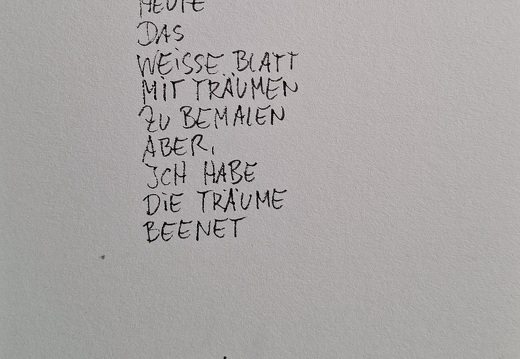 HEUTE
DAS
WEISSE BLATT
MIT TRÄUMEN
ZU BEMALEN
ABER,
ICH HABE
DIE TRÄUME
BEENET